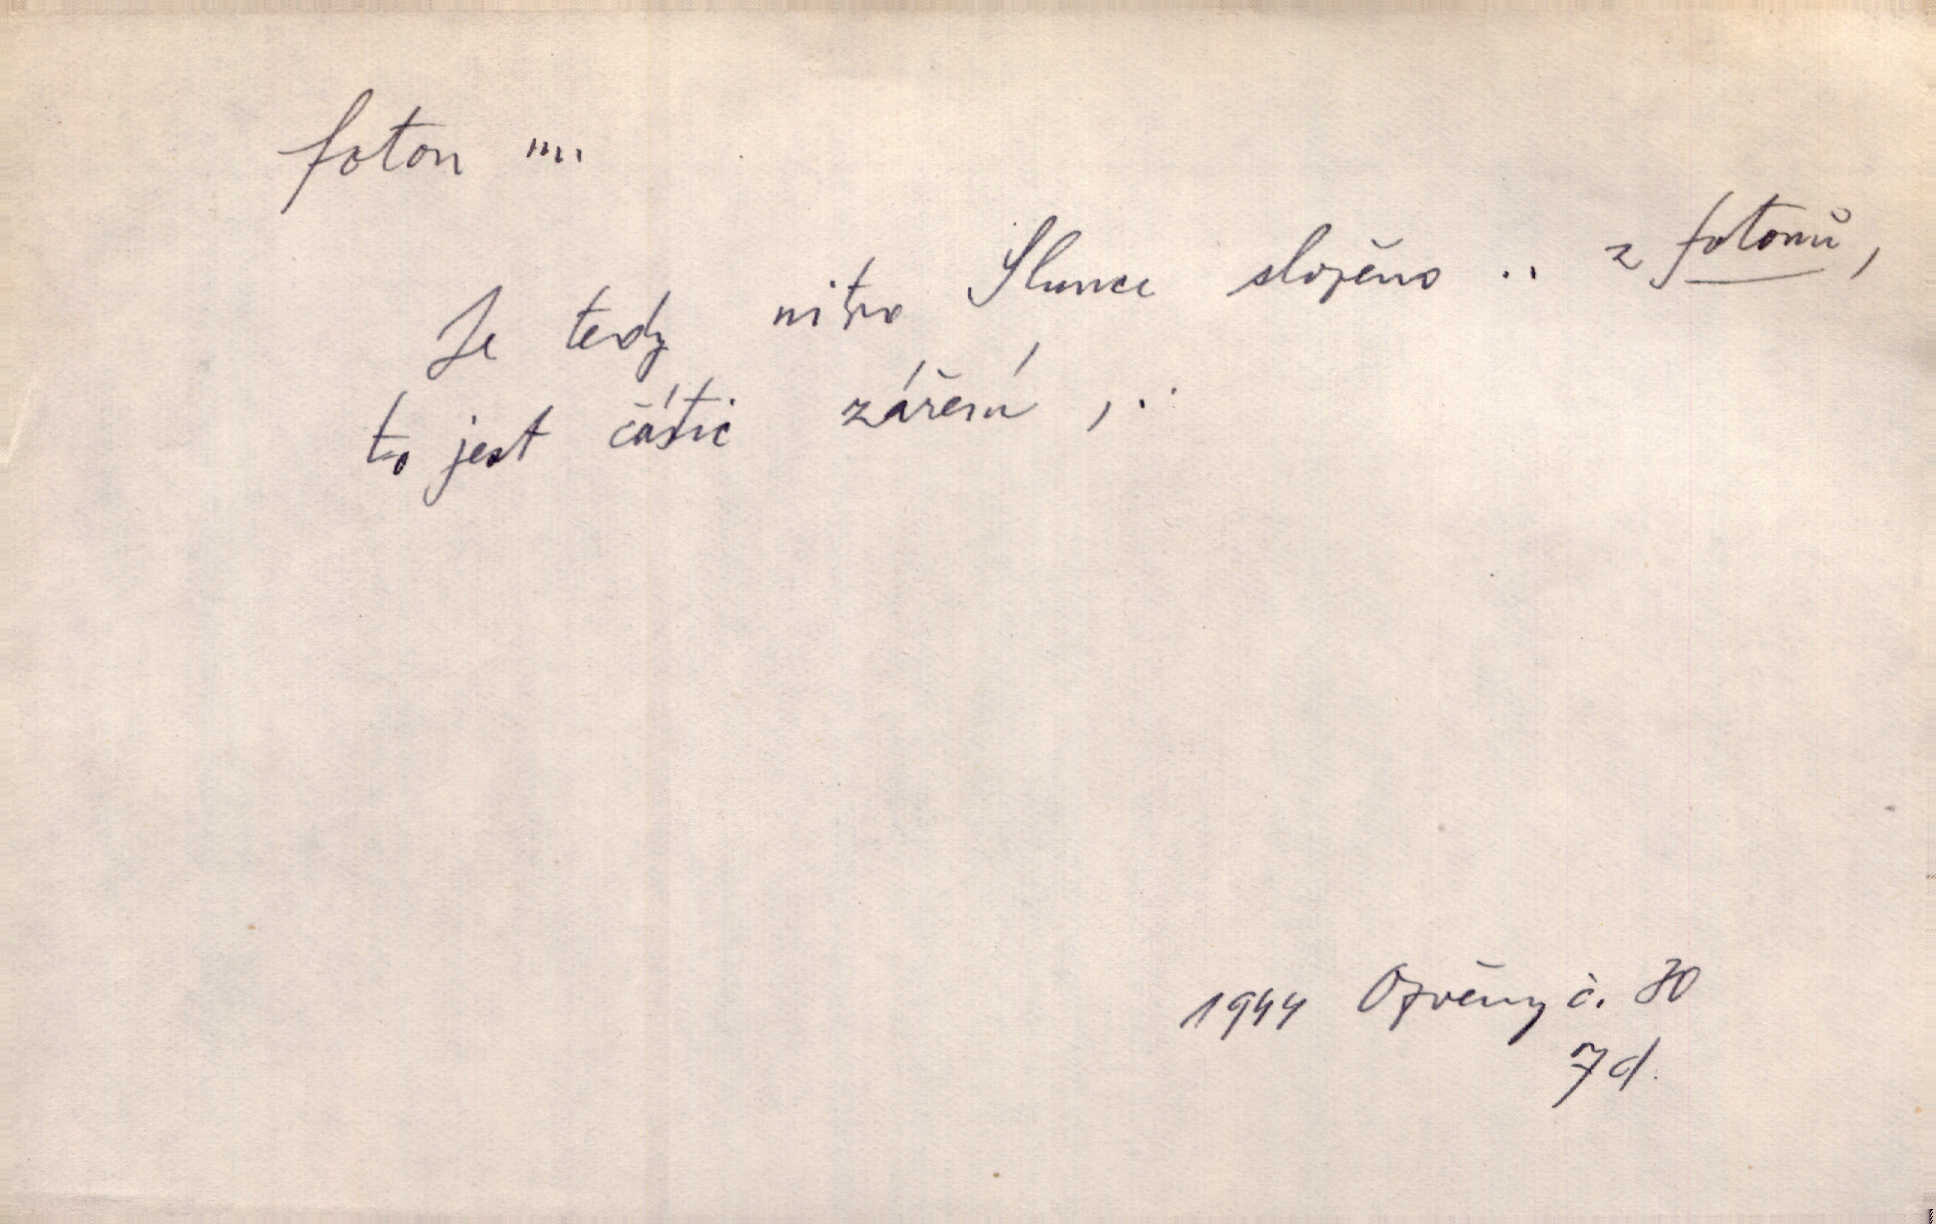 foton ....
Je tedy nitro Slunce složeno .. z fotonů,
to jest částic záření, ..
1944 Ozvěny č. 30
7 d.